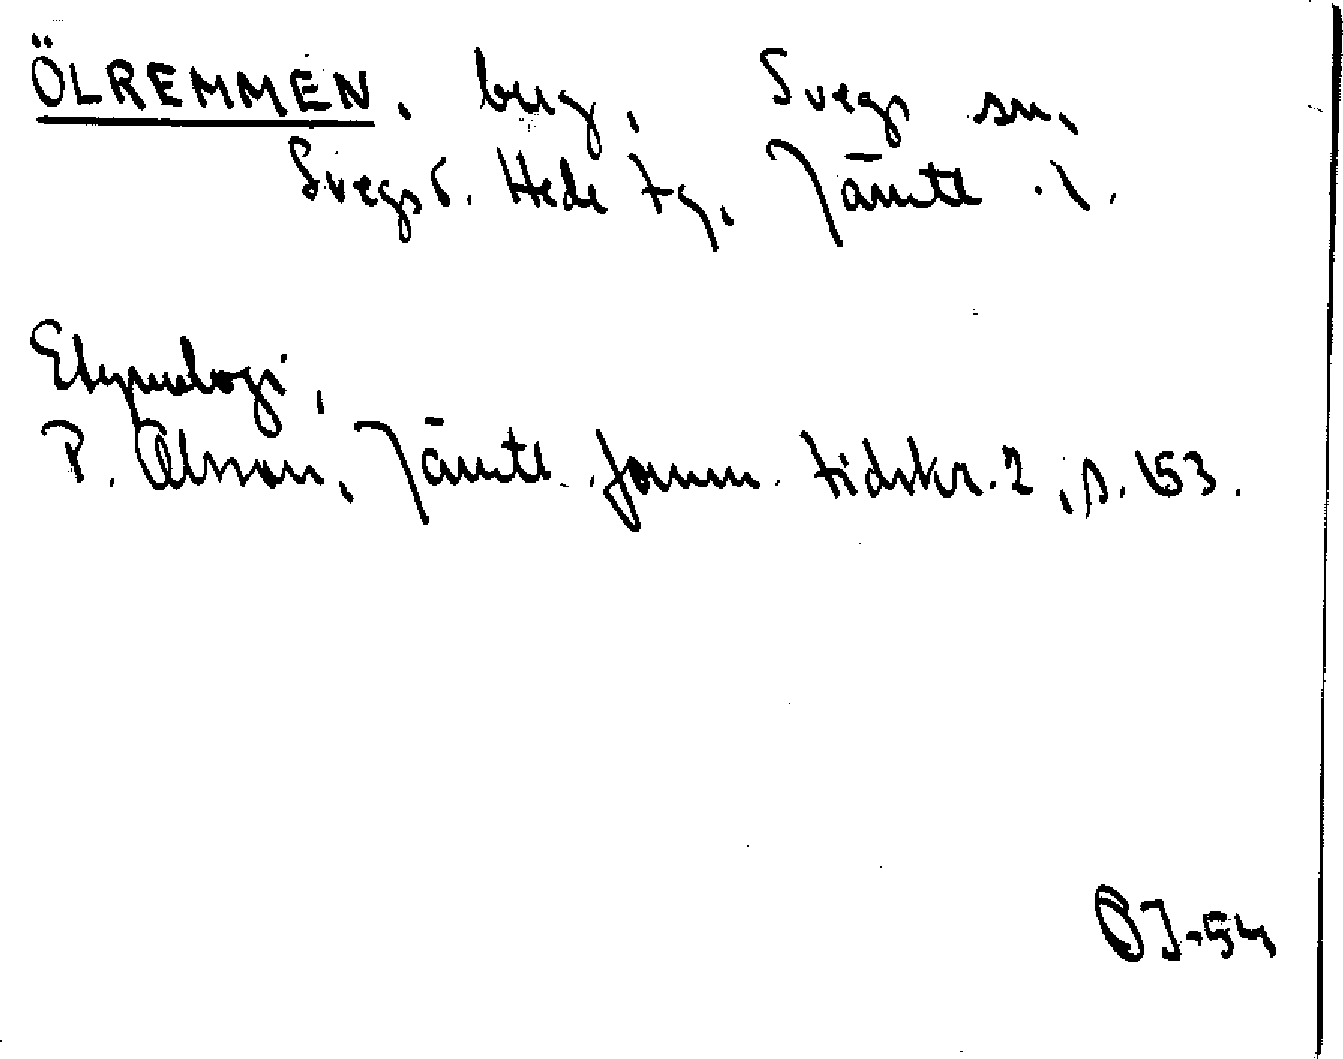 ÖLREMMEN, berg, Svegs sn,
Svegs o. Hede tg, Jämtl. l.
Etymologi,
P. Olsson, Jämtl. fornm. tidskr. 2, s. 153.
OJ-54